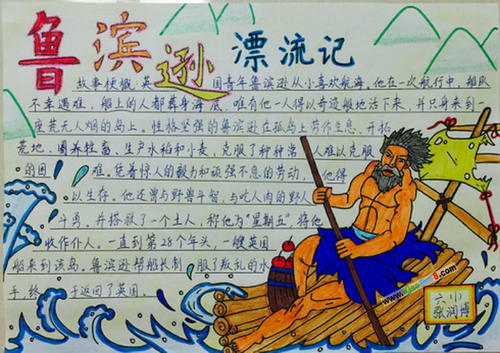 鲁滨逊漂流记
故事梗慨:英国青年鲁滨逊从小喜欢航海。他在一次航行中,船队
不幸遇难,船上的人都葬身海底,唯有他一人得以奇迹般地活下来,并只身来到
座荒无人烟的岛上。性格坚强的鲁滨逊在孤岛上劳作生息,开拓
荒地,圈养牲畜,生产水稻和小麦,克服了种种常人难以克服
的困难,凭着惊人的毅力和顽强不息的劳动,他得
以生存。他还曾与野兽斗智,与吃人肉的野人
斗勇。并搭救了一个土人,称他为"星期五",将他
收作仆人。一直到第28个年头,一艘英国
船来到该岛。鲁滨逊帮船长制服了叛乱的水
手,终于返回了英国
六(1)
张润博